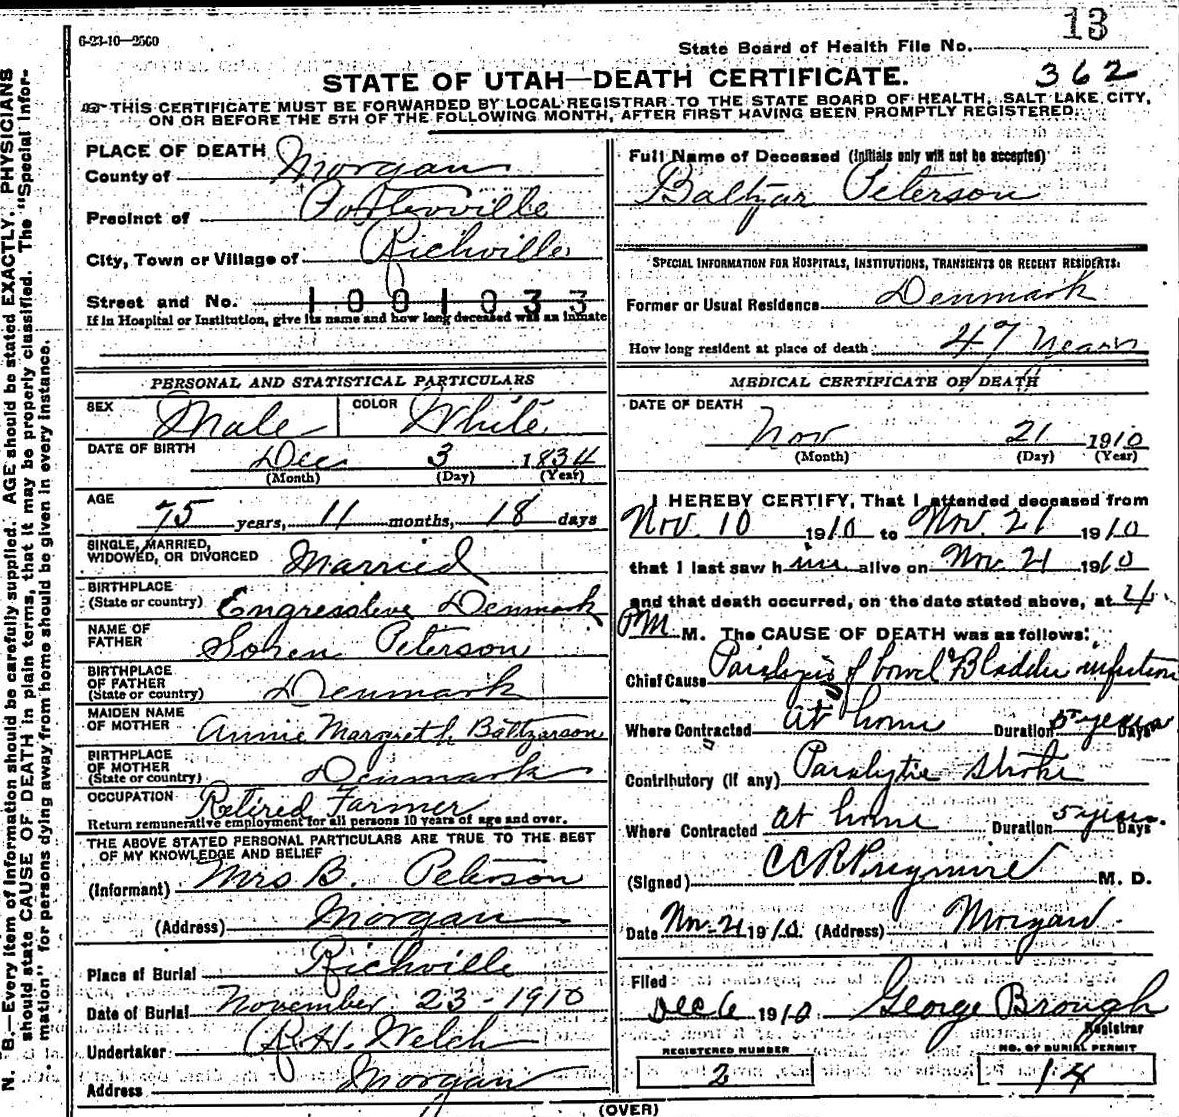 6-23-10—2500
13
State Board of Health File No.
362
STATE OF UTAH—DEATH CERTIFICATE.
THIS CERTIFICATE MUST BE FORWARDED BY LOCAL REGISTRAR TO THE STATE BOARD OF HEALTH, SALT LAKE CITY,
ON OR BEFORE THE 5TH OF THE FOLLOWING MONTH, AFTER FIRST HAVING BEEN PROMPTLY REGISTERED.
N. B.—Every item of information should be carefully supplied. AGE should be stated EXACTLY. PHYSICIANS
should state CAUSE OF DEATH in plain terms, that it may be properly classified. The "Special Infor-
mation" for persons dying away from home should be given in every instance.
PLACE OF DEATH
County of Morgan
Precinct of
City, Town or Village of Richville
Street and No. 1001033
If in Hospital or Institution, give its name and how long deceased was an inmate
PERSONAL AND STATISTICAL PARTICULARS
SEX Male COLOR White
DATE OF BIRTH Dec 3 1834
(Month) (Day) (Year)
AGE
75 years, 11 months, 18 days
SINGLE, MARRIED,
WIDOWED, OR DIVORCED Married
BIRTHPLACE
(State or country) Denmark
NAME OF
FATHER Soren Peterson
BIRTHPLACE
OF FATHER
(State or country) Denmark
MAIDEN NAME
OF MOTHER Annie Margreth Baltzarson
BIRTHPLACE
OF MOTHER
(State or country) Denmark
OCCUPATION Retired Farmer
Return remunerative employment for all persons 10 years of age and over.
THE ABOVE STATED PERSONAL PARTICULARS ARE TRUE TO THE BEST
OF MY KNOWLEDGE AND BELIEF
(Informant) Mrs B. Peterson
(Address) Morgan
Place of Burial Richville
Date of Burial November 23-1910
Undertaker R.H. Welch
Address Morgan
Full Name of Deceased (Initials only will not be accepted)
Baltzar Peterson
SPECIAL INFORMATION FOR HOSPITALS, INSTITUTIONS, TRANSIENTS OR RECENT RESIDENTS:
Former or Usual Residence Denmark
How long resident at place of death 47 Years
MEDICAL CERTIFICATE OF DEATH
DATE OF DEATH
Nov 21 1910
(Month) (Day) (Year)
I HEREBY CERTIFY, That I attended deceased from
Nov. 10 1910 to Nov. 21 1910
that I last saw him alive on Nov. 21 1910
and that death occurred, on the date stated above, at 4
PM M. The CAUSE OF DEATH was as follows:
Chief Cause Paralysis of bowel & Bladder infection
Where Contracted at home Duration 5 years Days
Contributory (if any) Paralytic stroke
Where Contracted at home Duration 5 years. Days
(Signed) M. D.
Date Nov. 21 1910. (Address) Morgan
Filed
Dec 6 1910 George Brough
Registrar
REGISTERED NUMBER
2
NO. OF BURIAL PERMIT
14
(OVER)